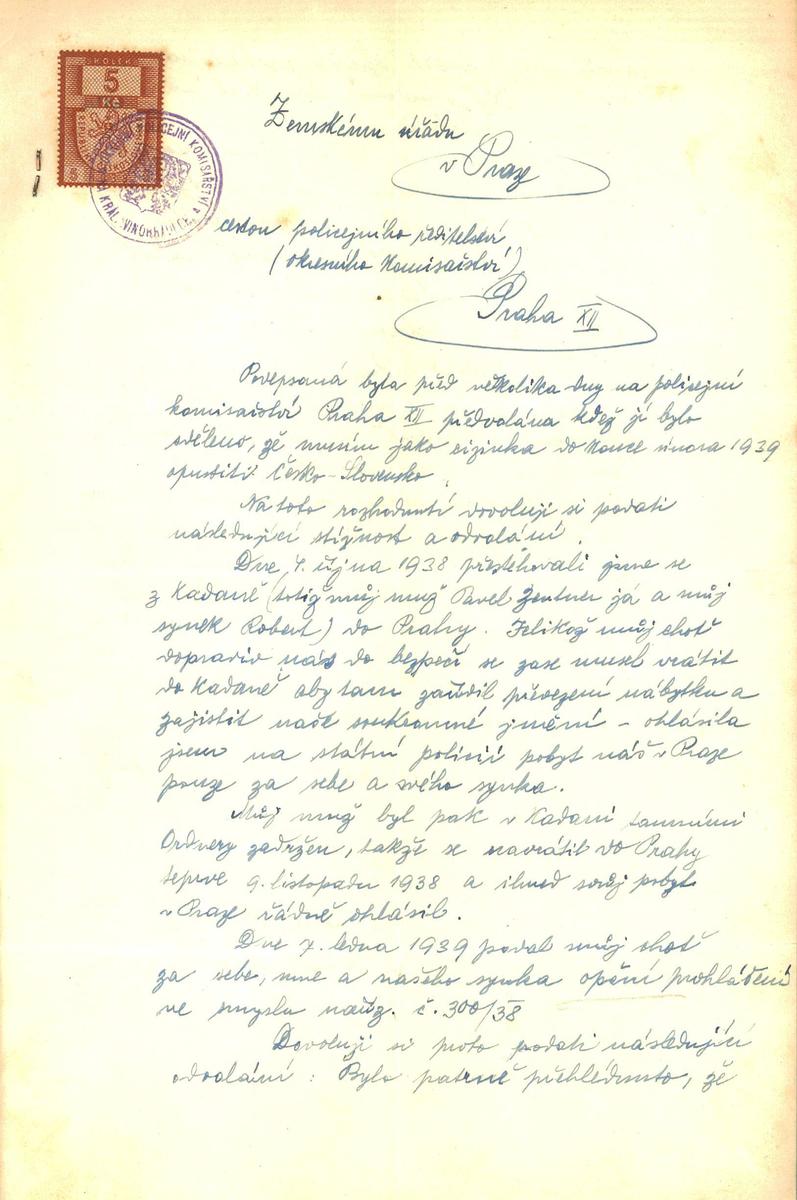 KOLEK
5
Kč
POLICEJNÍ KOMISAŘSTVÍ
KRÁL. VINOHRADECH
Zemskému úřadu
v Praze
cestou policejního ředitelství
(okresního komisařství)
Praha XII
Podepsaná byla před několika dny na policejní
komisařství Praha XII předvolána když jí bylo
sděleno, že musím jako cizinka do konce února 1939
opustiti Česko-Slovensko.
Na toto rozhodnutí dovoluji si podati
následující stížnost a odvolání.
Dne 4. října 1938 přestěhovali jsme se
z Kadaně (totiž můj muž Pavel Zentner já a můj
synek Robert) do Prahy. Jelikož můj choť
dopraviv nás do bezpečí se zase musel vrátit
do Kadaně aby tam zařídil převezení nábytku a
zajistit naše soukromné jmění – ohlásila
jsem na státní policii pobyt náš v Praze
pouze za sebe a svého synka.
Můj muž byl pak v Kadani tamními
Ordnery zadržen, takže se navrátil do Prahy
teprve 9. listopadu 1938 a ihned svůj pobyt
v Praze řádně ohlásil.
Dne 7. ledna 1939 podal můj choť
za sebe, mne a našeho synka opční prohlášení
ve smyslu nařiz. č. 300/38
Dovoluji si proto podati následující
odvolání: Bylo patrně přehlédnuto, že